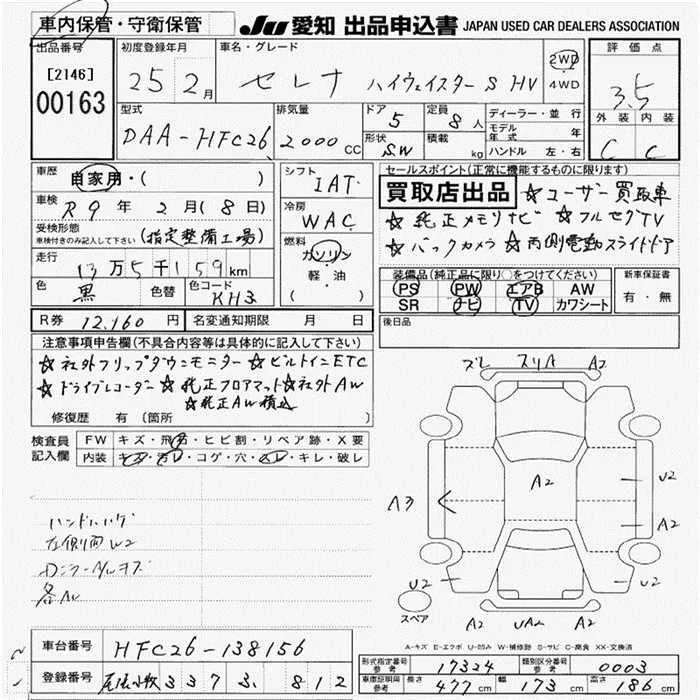 車内保管・守衛保管
JU 愛知 出品申込書 JAPAN USED CAR DEALERS ASSOCIATION
出品番号
[2146]
00163
初度登録年月
25 2月
車名・グレード
セレナ ハイウェイスター S HV
2WD
4WD
評価点
3.5
外装 内装
C C
型式
DAA-HFC26
排気量
2000 CC
ドア
5
定員
8人
形状
S.W
積載
kg
ディーラー・並行
モデル年式 年
ハンドル 左・右
車歴
自家用・( )
車検
R9年2月(8日)
受検形態
車検付きのみ記入して下さい
(指定整備工場)
走行
13万5千159km
色
黒
色替
色コード
KH3
シフト
IAT
冷房
WAC
燃料
ガソリン
軽・油
( )
セールスポイント(正常に機能するものに限ります)
買取店出品 ☆ユーザー買取車
☆純正メモリナビ ☆フルセグTV
☆バックカメラ ☆両側電動スライドドア
装備品(純正品に限り○をつけてください)
PS PW エアB AW
SR ナビ TV カワシート
新車保証書
有・無
R券 12,160円
名変通知期限 月 日
後日品
注意事項申告欄(不具合内容等は具体的に記入して下さい)
☆社外フリップダウンモニター ☆ビルトインETC
☆ドライブレコーダー ☆純正フロアマット ☆社外AW
☆純正AW積込
修復歴 有(箇所 )
検査員記入欄
FW キズ・飛石・ヒビ割・リペア跡・X要
内装 キズ・汚レ・コゲ・穴・スレ・キレ・破レ
ハンドルハゲ
左側面W2
各AW
ズレ スリハ A2
A2
U2
A2
A3
U2
U2
スペア
A2 UA2 A2
A-キズ E-エクボ U-凹み W-補修跡 S-サビ C-腐食 XX-交換済
車台番号 HFC26-138156
登録番号 尾張小牧 337 812
形式指定番号 参考 17324
類別区分番号 参考 0003
車庫証明用 参考 長さ 477cm 幅 173cm 高さ 186cm